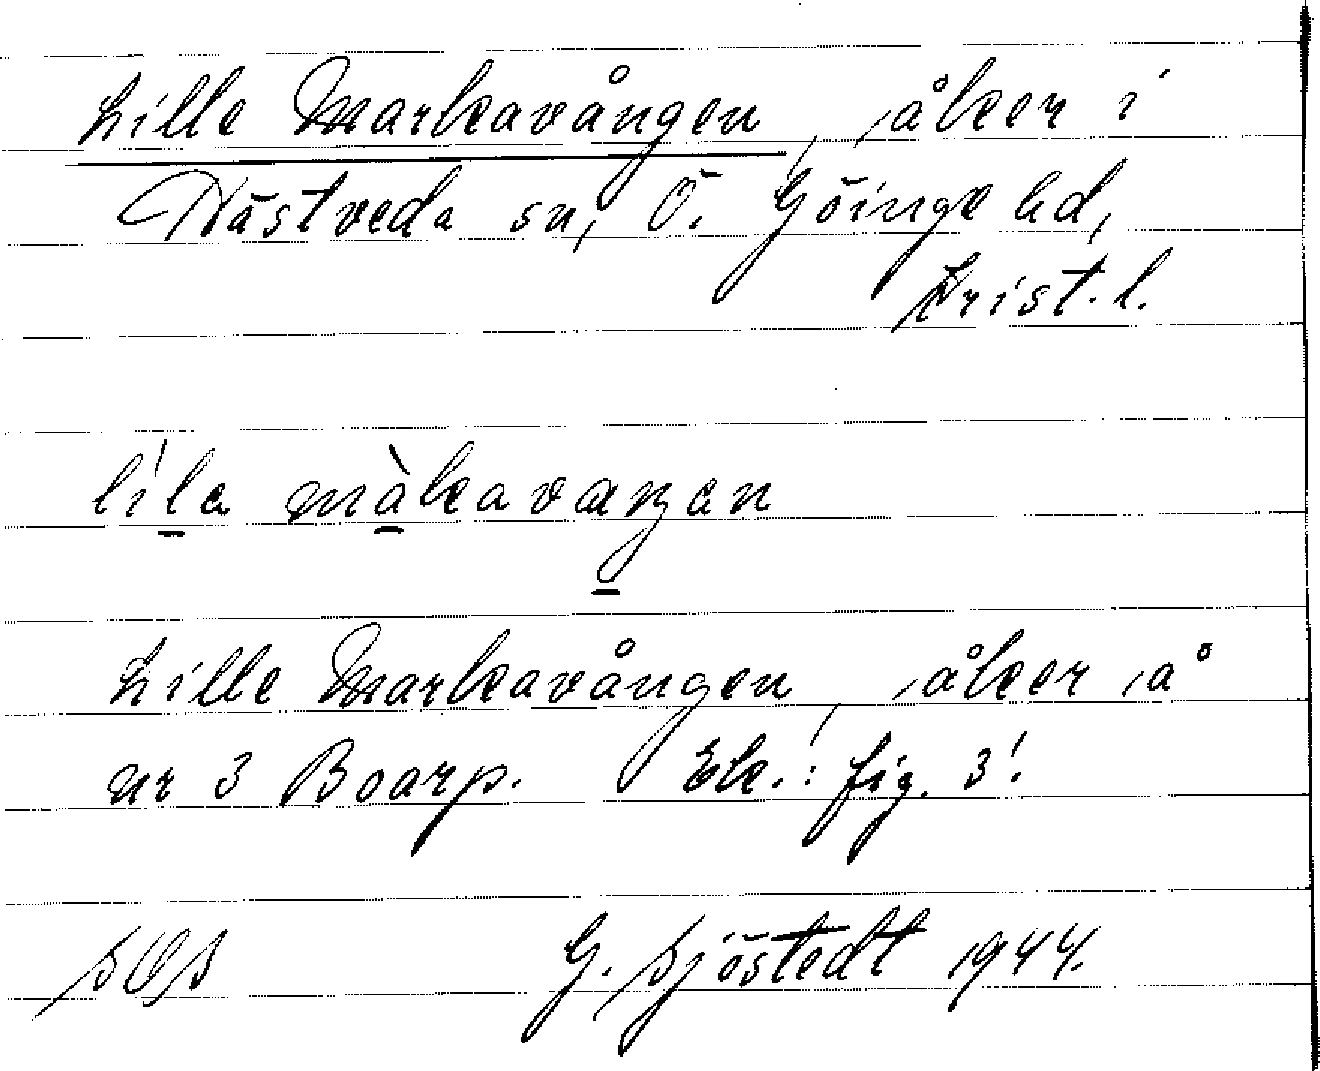 Lille Markavången, åker i
Hästveda sn, Ö. Göinge hd,
Krist. l.
lila màkavaŋen
Lille Markavången, åker å
nr 3 Boarp. Ek.: fig. 3!
G. Sjöstedt 1944.